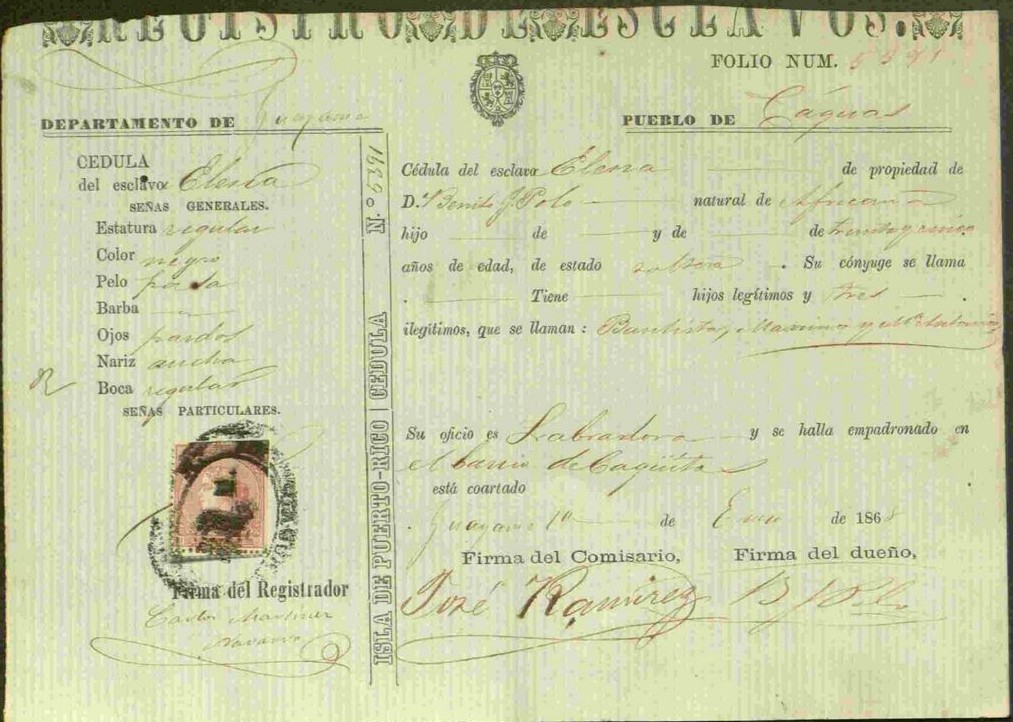 REGISTRO DE ESCLAVOS.
FOLIO NUM. 5391
DEPARTAMENTO DE Guayama
PUEBLO DE Cáguas
CEDULA
del esclavo Elena
SEÑAS GENERALES.
Estatura regular
Color negro
Pelo pasa
Barba
Ojos pardos
Nariz ancha
Boca regular
SEÑAS PARTICULARES.
Firma del Registrador
Carlos Martinez
Navarro
ISLA DE PUERTO-RICO CEDULA N.º 5391
Cédula del esclava Elena de propiedad de
D.n Benito J Polo natural de Africana
hijo de y de de treinta y cinco
años de edad, de estado soltera. Su cónyuge se llama
Tiene hijos legítimos y tres
ilegítimos, que se llaman: Bautista, Maximo y Mª Antonia
Su oficio es Labradora y se halla empadronado en
el barrio de Cagüitas
está coartado
Guayama 10 de Enero de 1868
Firma del Comisario, Firma del dueño,
José Ramirez B J Polo